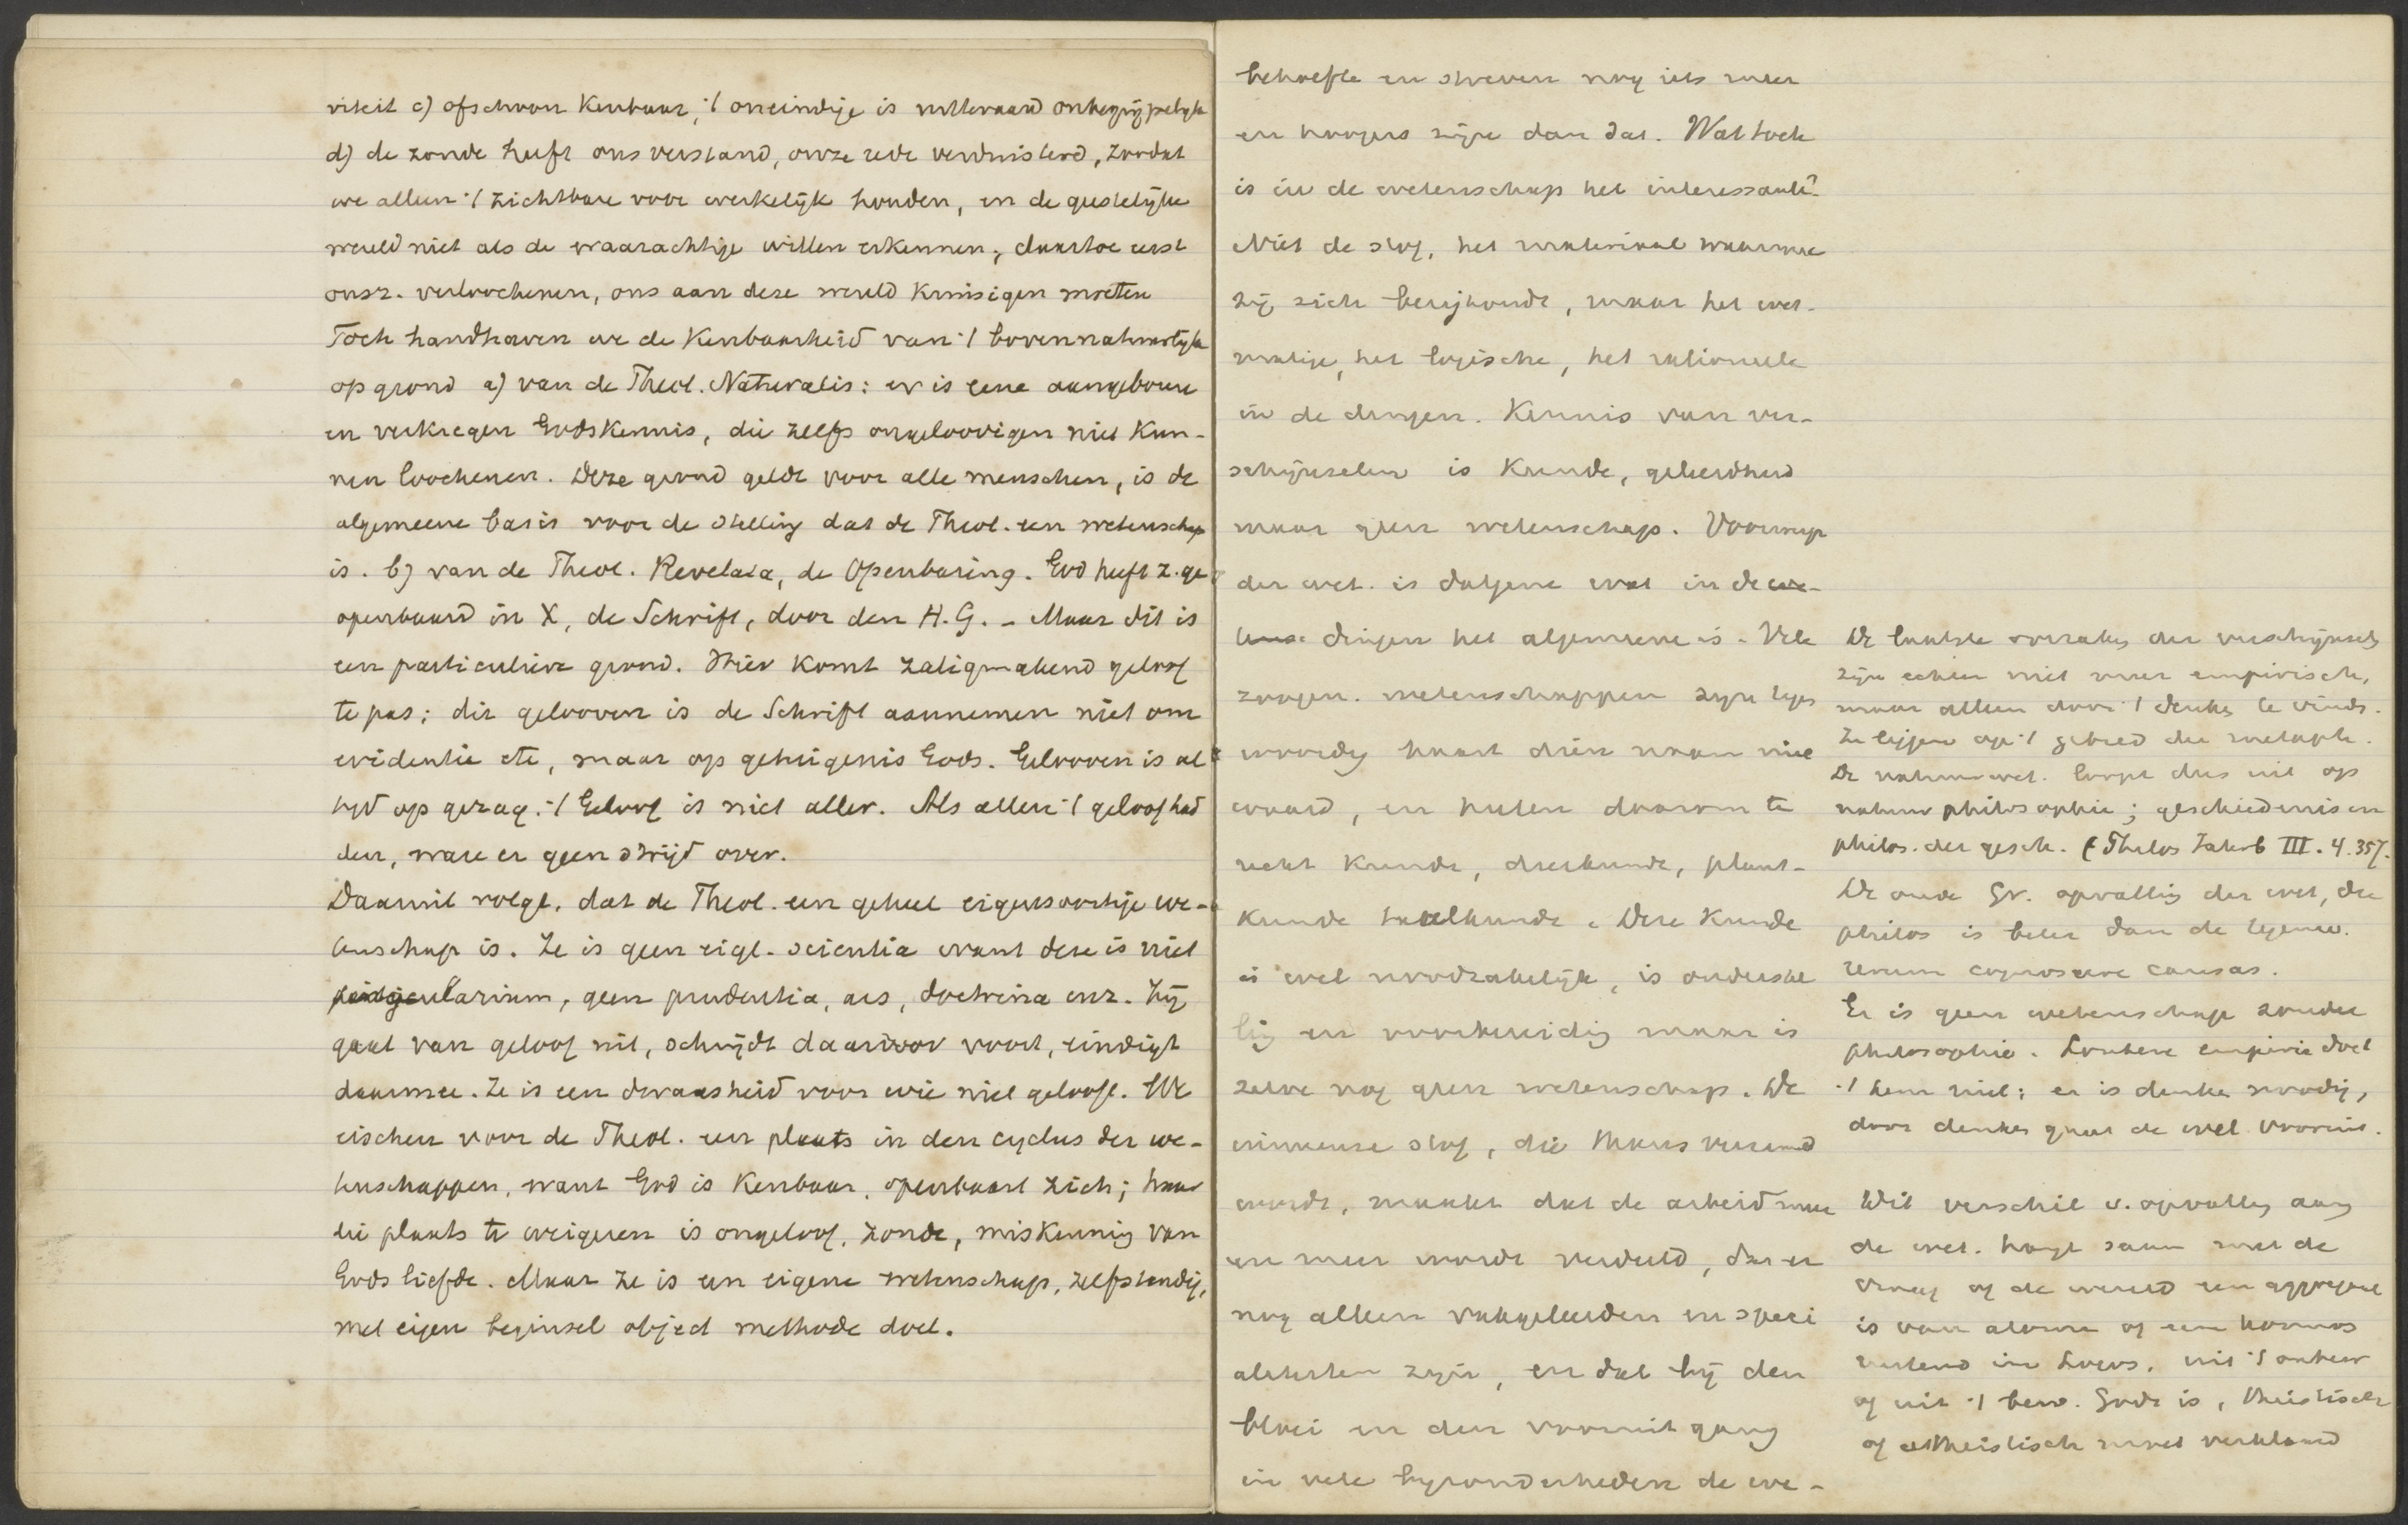 viteit c) ofschoon kenbaar, ·/ oneindige is uitteraard onbegrijpelijk
d) de zonde heeft ons verstand, onze rede verduisterd, zoodat
we alleen ·/ zichtbare voor werkelijk houden, en de geestelijke
wereld niet als de waarachtige willen erkennen, daartoe eerst
onsz. verloochenen, ons aan deze wereld kruisigen moeten
Toch handhaven we de kenbaarheid van ·/ bovennatuurlijk
op grond a) van de Theol. Naturalis: er is eene aangeboren
en verkregen Godskennis, die zelfs ongeloovigen niet kun-
nen loochenen. Deze grond geldt voor alle menschen, is de
algemeene basis voor de stelling dat de Theol. een wetenschap
is. b) van de Theol. Revelata, de Openbaring. God heeft z. ge
openbaard in X, de Schrift, door den H. G. - Maar dit is
een particuliere grond. Hier komt zaligmakend geloof
te pas; dit gelooven is de Schrift aannemen niet om
evidentie etc, maar op getuigenis Gods. Gelooven is al
tyd op gezag. ·/ Geloof is niet aller. Als allen ·/ geloof had
den, ware er geen strijd over.
Daaruit volgt, dat de Theol. een geheel eigensoortige we-
tenschap is. Ze is geen eigl. scientia want deze is niet
singularium, geen prudentia, ars, doctrina enz. Zij
gaat van geloof uit, schrijdt daardoor voort, eindigt
daarmee. Ze is een dwaasheid voor wie niet gelooft. We
eischen voor de Theol. een plaats in den cyclus der we-
tenschappen, want God is kenbaar, openbaart zich; haar
die plaats te weigeren is ongeloof, zonde, miskenning van
Gods liefde. Maar ze is een eigene wetenschap, zelfstandig,
met eigen beginsel object methode doel.
behoefte en streven nog iets meer
en hoogers zijn dan dat. Wat toch
is in de wetenschap het interessante?
Niet de stof, het materiaal waarmee
zij zich bezighoudt, maar het wet-
matige, het logische, het rationeele
in de dingen. Kennis van ver-
schijnselen is Kunde, geleerdheid
maar geen wetenschap. Voorwerp
der wet. is datgene wat in de
dingen het algemeene is. Vele
zoogen. wetenschappen zyn tegen
woordig haast dien naam niet
waard, en heten daarom te
recht Kunde, dierkunde, plant-
kunde taalkunde. Deze Kunde
is wel noodzakelijk, is onderstel
lig en voorbereidig maar is
zelve nog geen wetenschap. De
immense stof, die thans verzameld
wordt, maakt dat de arbeid meer
en meer wordt verdeeld, dat er
nog alleen vakgeleerden en speci
alisten zijn, en dat bij den
bloei en den vooruitgang
in vele byzonderheden de we-
De laatste oorzaken der verschijnsels
zijn echter niet meer empirisch,
maar alleen door ·/ denken te vinde.
Ze liggen op ·/ gebied der metaph.
De natuurwet. loopt dus uit op
natuurphilosophie; geschiedenis in
philos. der gesch. (Thilos Jakob III. 4. 357.
De oude Gr. opvatting der wet, die
philos is beter dan de tegenw.
rerum cognoscere causas.
Er is geen wetenschap zonder
philosophie. Loutere empirie doet
·/ hem niet; er is denken noodig,
door denken gaat de wet vooruit.
Dit verschil v. opvatting aang
de wet. hangt saam met de
vraag of de wereld een aggregaat
is van atomen of een kosmos
rustend in Logos, uit ·/ onbew
of uit ·/ bew. Gods is, theistisch
of atheistisch moet verklaard